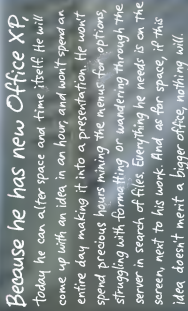 Because he has new Office XP,
today he can alter space and time itself. He will
come up with an idea in an hour, and won't spend an
entire day making it into a presentation. He won't
spend precious hours mining the menus for options,
struggling with formatting or wandering through the
server in search of files. Everything he needs is on the
screen, next to his work. And as for space, if this
idea doesn't merit a bigger office, nothing will.